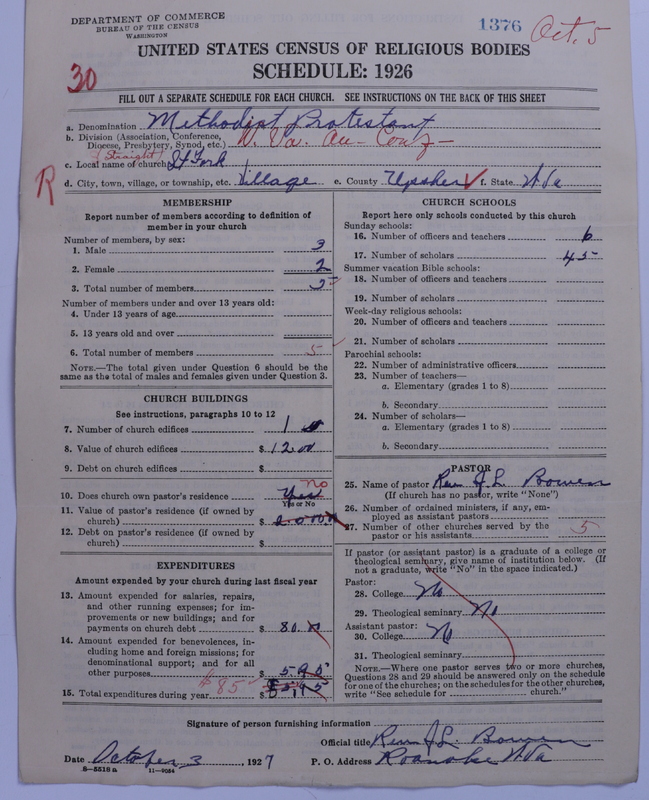 DEPARTMENT OF COMMERCE
BUREAU OF THE CENSUS
WASHINGTON
1376 Oct. 5
UNITED STATES CENSUS OF RELIGIOUS BODIES
30
SCHEDULE: 1926
FILL OUT A SEPARATE SCHEDULE FOR EACH CHURCH. SEE INSTRUCTIONS ON THE BACK OF THIS SHEET
a. Denomination Methodist Protestant
b. Division (Association, Conference, Diocese, Presbytery, Synod, etc.) W. Va. An-Conf-
(Straight)
c. Local name of church St Fork
R
d. City, town, village, or township, etc. Village e. County Upsher f. State W Va
MEMBERSHIP
Report number of members according to definition of
member in your church
Number of members, by sex:
1. Male 3
2. Female 2
3. Total number of members 5
Number of members under and over 13 years old:
4. Under 13 years of age
5. 13 years old and over
6. Total number of members 5
NOTE.—The total given under Question 6 should be the
same as the total of males and females given under Question 3.
CHURCH BUILDINGS
See instructions, paragraphs 10 to 12
7. Number of church edifices 1
8. Value of church edifices $ 1200
9. Debt on church edifices $
no
10. Does church own pastor's residence Yes
Yes or No
11. Value of pastor's residence (if owned by
church) $
12. Debt on pastor's residence (if owned by
church) $
EXPENDITURES
Amount expended by your church during last fiscal year
13. Amount expended for salaries, repairs,
and other running expenses; for im-
provements or new buildings; and for
payments on church debt $ 80.
14. Amount expended for benevolences, in-
cluding home and foreign missions; for
denominational support; and for all
other purposes $
15. Total expenditures during year $85 $
CHURCH SCHOOLS
Report here only schools conducted by this church
Sunday schools:
16. Number of officers and teachers 6
17. Number of scholars 45
Summer vacation Bible schools:
18. Number of officers and teachers
19. Number of scholars
Week-day religious schools:
20. Number of officers and teachers
21. Number of scholars
Parochial schools:
22. Number of administrative officers
23. Number of teachers—
a. Elementary (grades 1 to 8)
b. Secondary
24. Number of scholars—
a. Elementary (grades 1 to 8)
b. Secondary
PASTOR
25. Name of pastor Rev. J. L. Bowen
(If church has no pastor, write "None")
26. Number of ordained ministers, if any, em-
ployed as assistant pastors
27. Number of other churches served by the
pastor or his assistants 5
If pastor (or assistant pastor) is a graduate of a college or
theological seminary, give name of institution below. (If
not a graduate, write "No" in the space indicated.)
Pastor:
28. College No
29. Theological seminary No
Assistant pastor:
30. College No
31. Theological seminary
NOTE.—Where one pastor serves two or more churches,
Questions 28 and 29 should be answered only on the schedule
for one of the churches; on the schedules for the other churches,
write "See schedule for church."
Signature of person furnishing information
Official title Rev. J. L. Bowen
Date October 3, 1927 P. O. Address Roanoke W Va
8-5518 a 11-9054